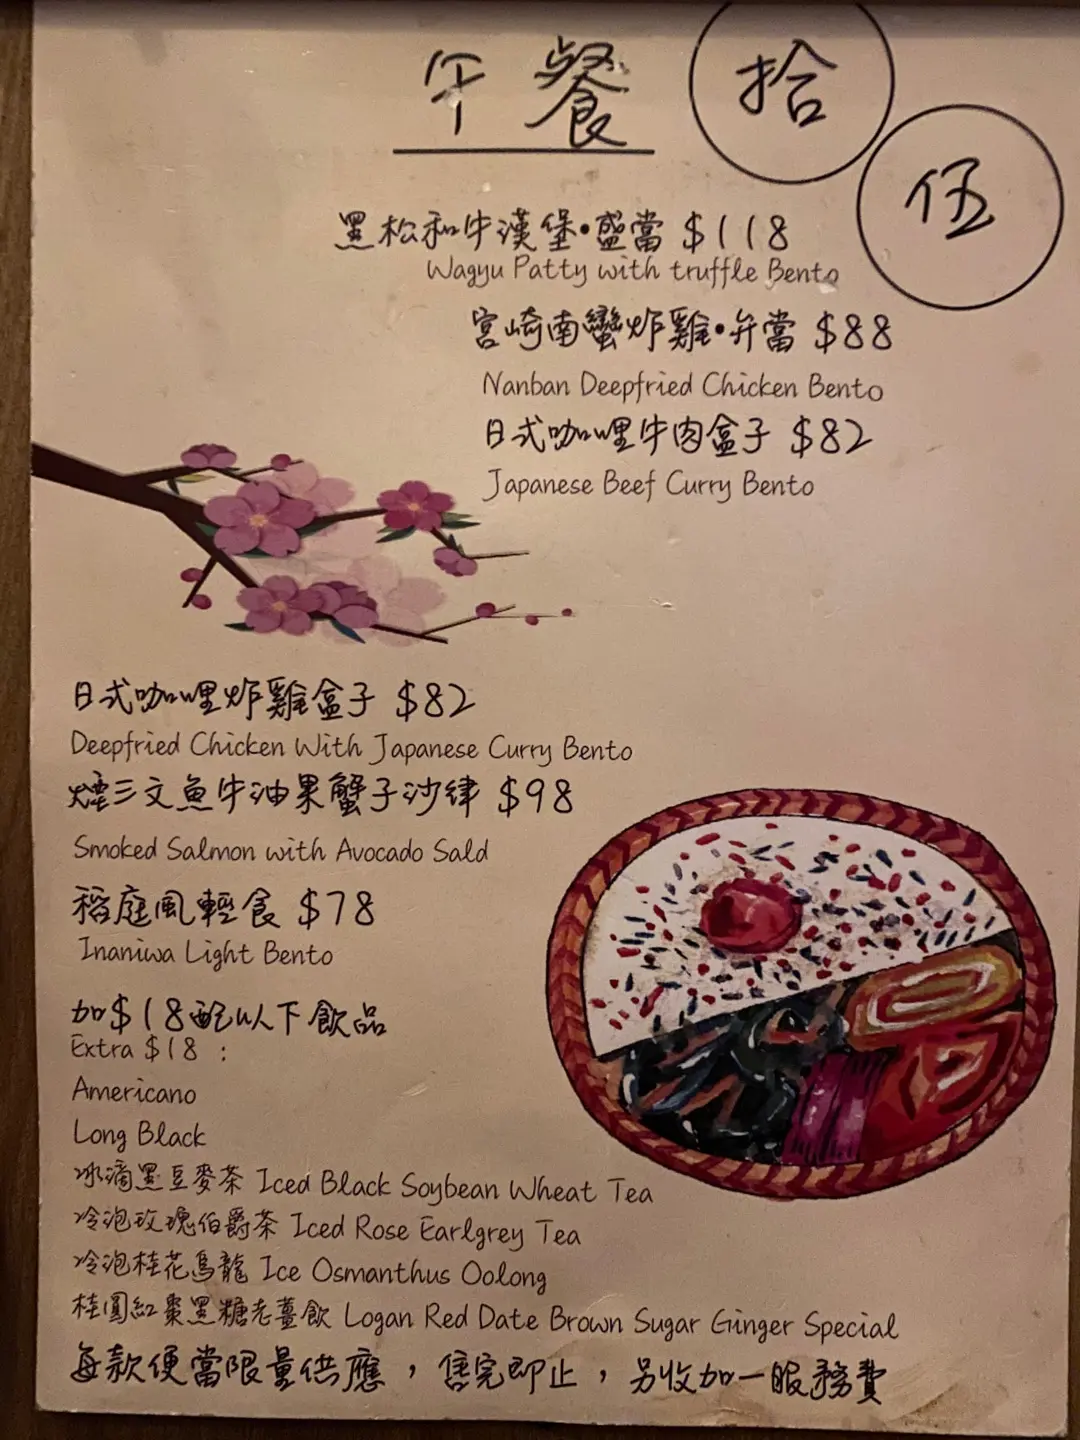 午餐
拾
伍
黑松和牛漢堡•盛當 $118
Wagyu Patty with truffle Bento
宮崎南蠻炸雞•弁當 $88
Nanban Deepfried Chicken Bento
日式咖喱牛肉盒子 $82
Japanese Beef Curry Bento
日式咖喱炸雞盒子 $82
Deepfried Chicken With Japanese Curry Bento
煙三文魚牛油果蟹子沙律 $98
Smoked Salmon with Avocado Sald
稻庭風輕食 $78
Inaniwa Light Bento
加$18配以下飲品
Extra $18 :
Americano
Long Black
冰滴黑豆麥茶 Iced Black Soybean Wheat Tea
冷泡玫瑰伯爵茶 Iced Rose Earlgrey Tea
冷泡桂花烏龍 Ice Osmanthus Oolong
桂圓紅棗黑糖老薑飲 Logan Red Date Brown Sugar Ginger Special
每款便當限量供應，售完即止，另收加一服務費